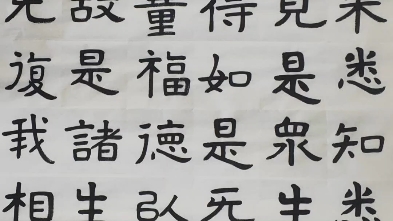 來悉知悉
見是衆生
得如是无
量福德以
故是諸生
无復我相